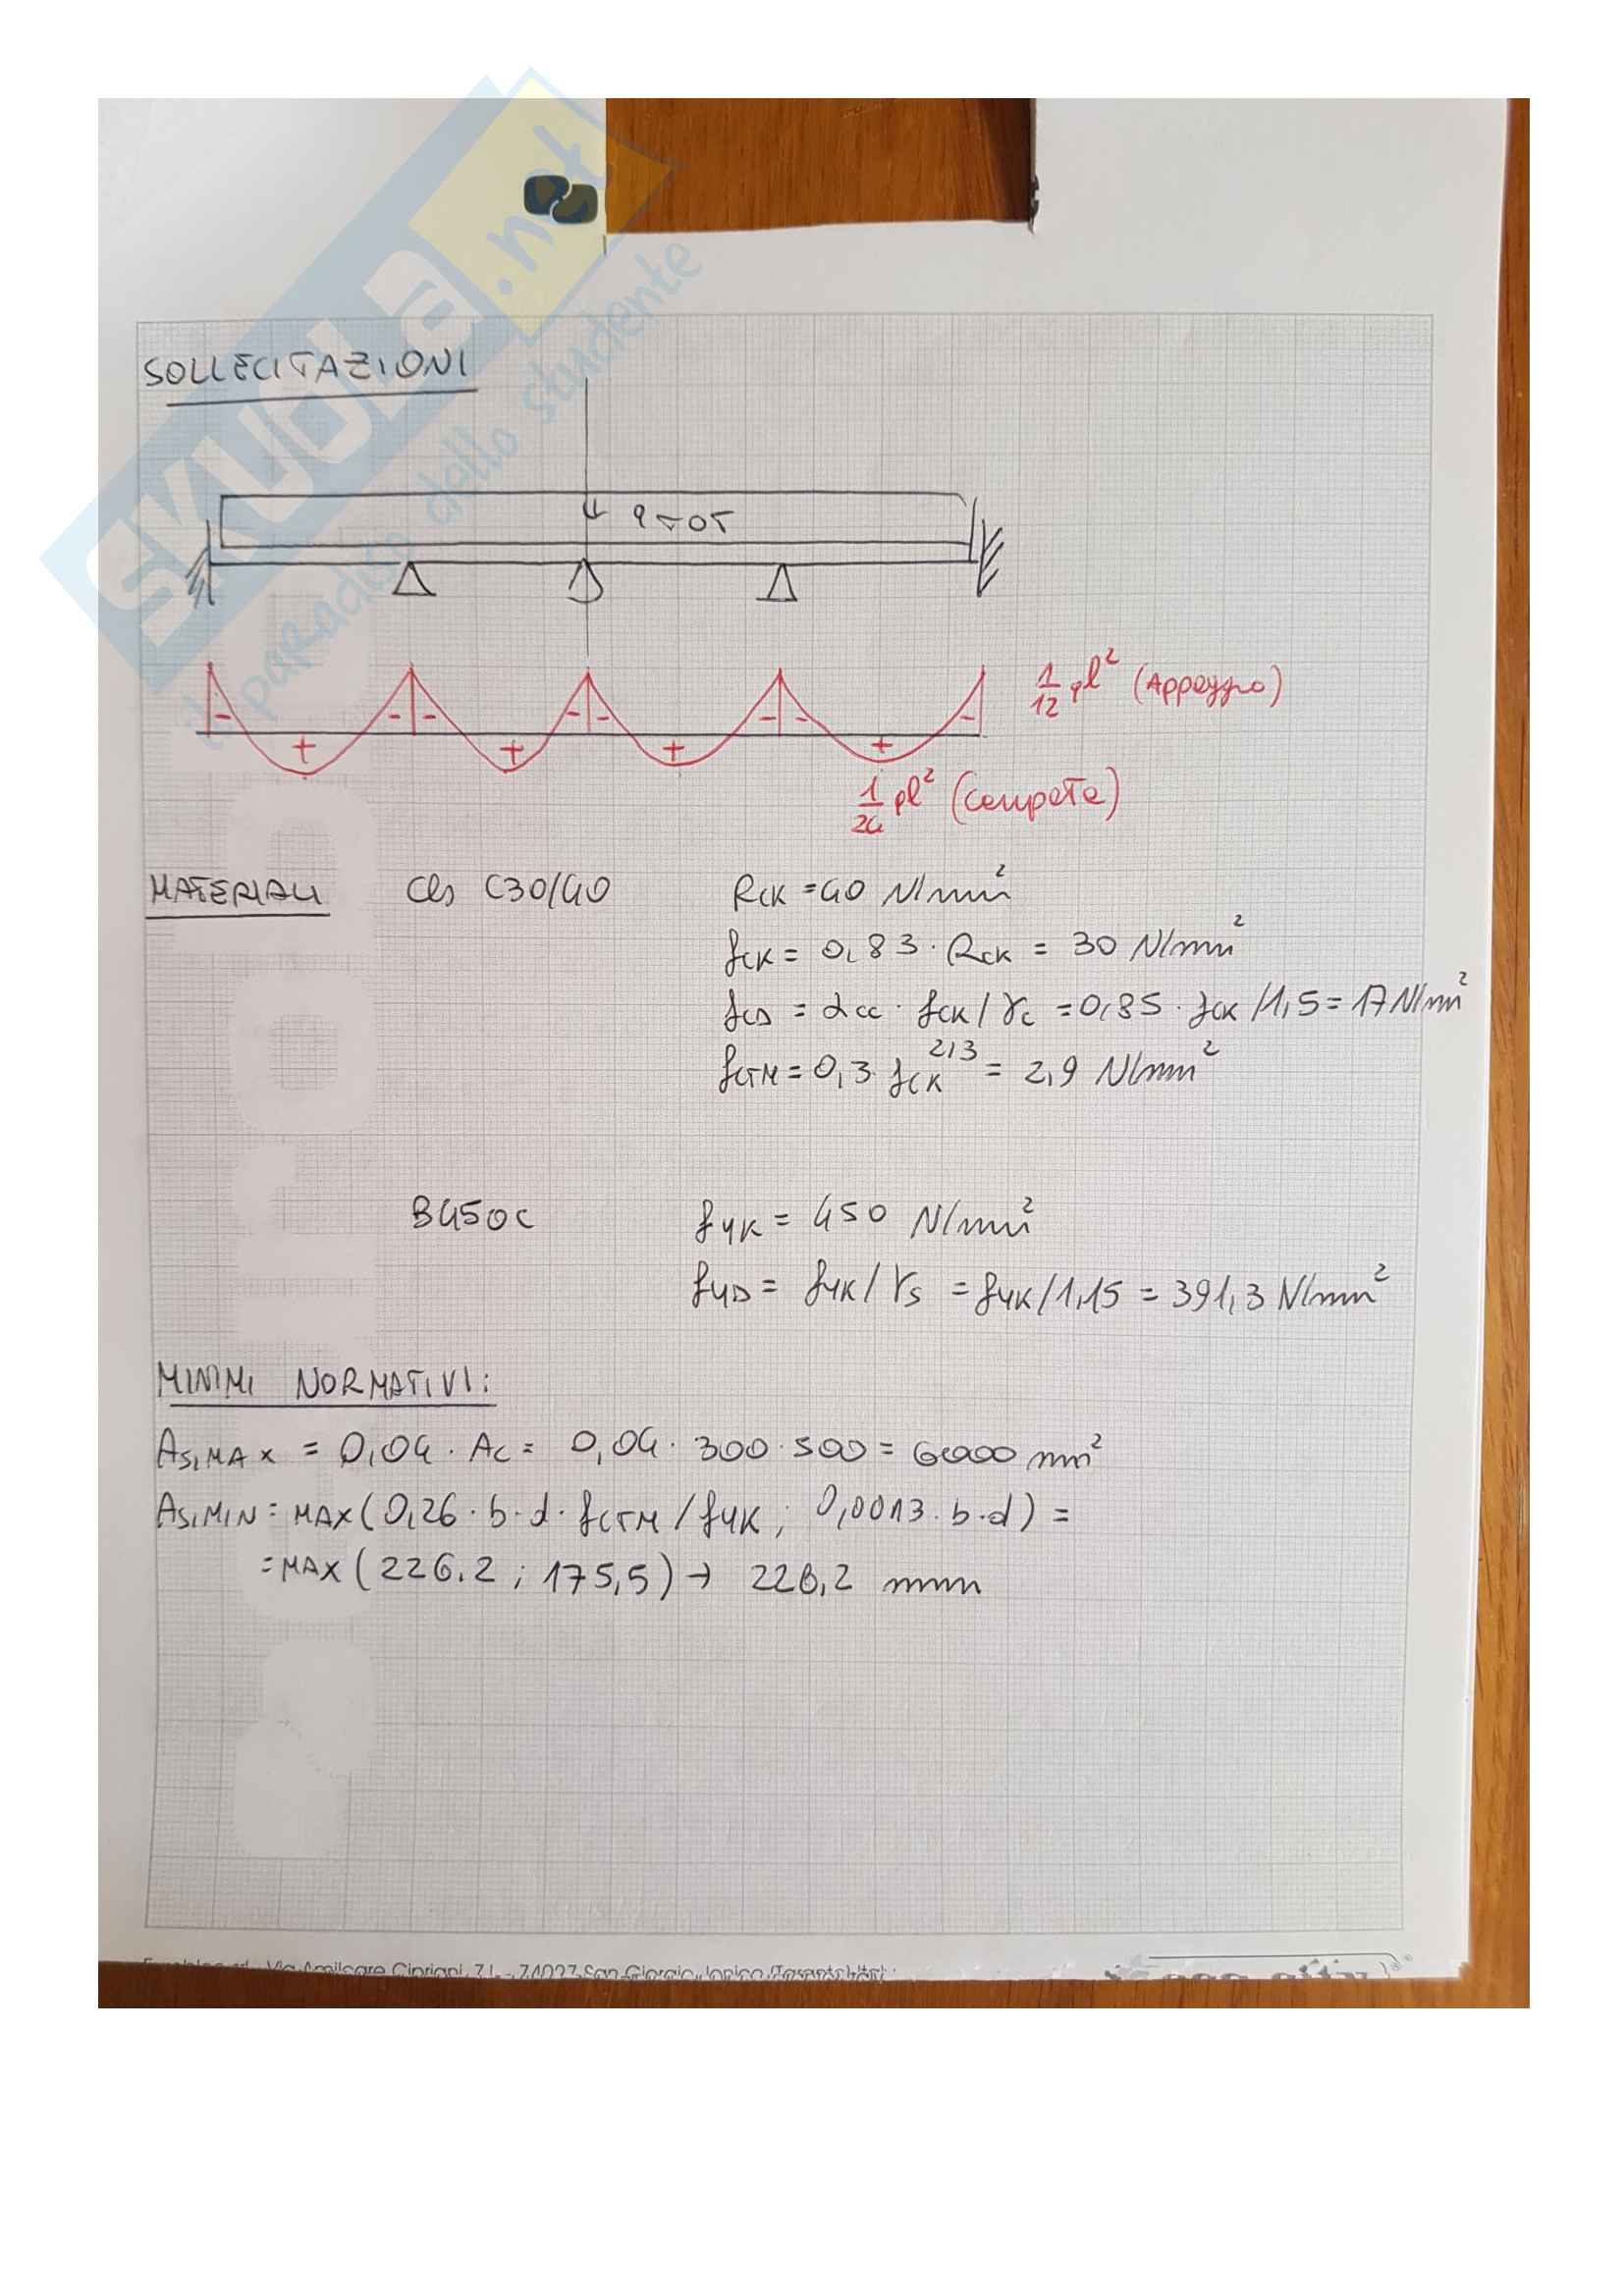 SKUOLA.net
il paradiso dello studente
SOLLECITAZIONI
qTOT
1/12 pl² (Appoggio)
1/24 pl² (Campata)
MATERIALI Cls C30/40 RCK = 40 N/mm²
fCK = 0,83 · RCK = 30 N/mm²
fCD = αcc · fCK / γc = 0,85 · fCK / 1,5 = 17 N/mm²
fCTM = 0,3 · fCK^2/3 = 2,9 N/mm²
B450C fYK = 450 N/mm²
fYD = fYK / γS = fYK / 1,15 = 391,3 N/mm²
MINIMI NORMATIVI:
AS,MAX = 0,04 · AC = 0,04 · 300 · 500 = 6000 mm²
AS,MIN = MAX (0,26 · b · d · fCTM / fYK ; 0,0013 · b · d) =
= MAX (226.2 ; 175,5) → 226,2 mm
Via Amilcare Cipriani, 71 - 74027 San Giorgio Jonico